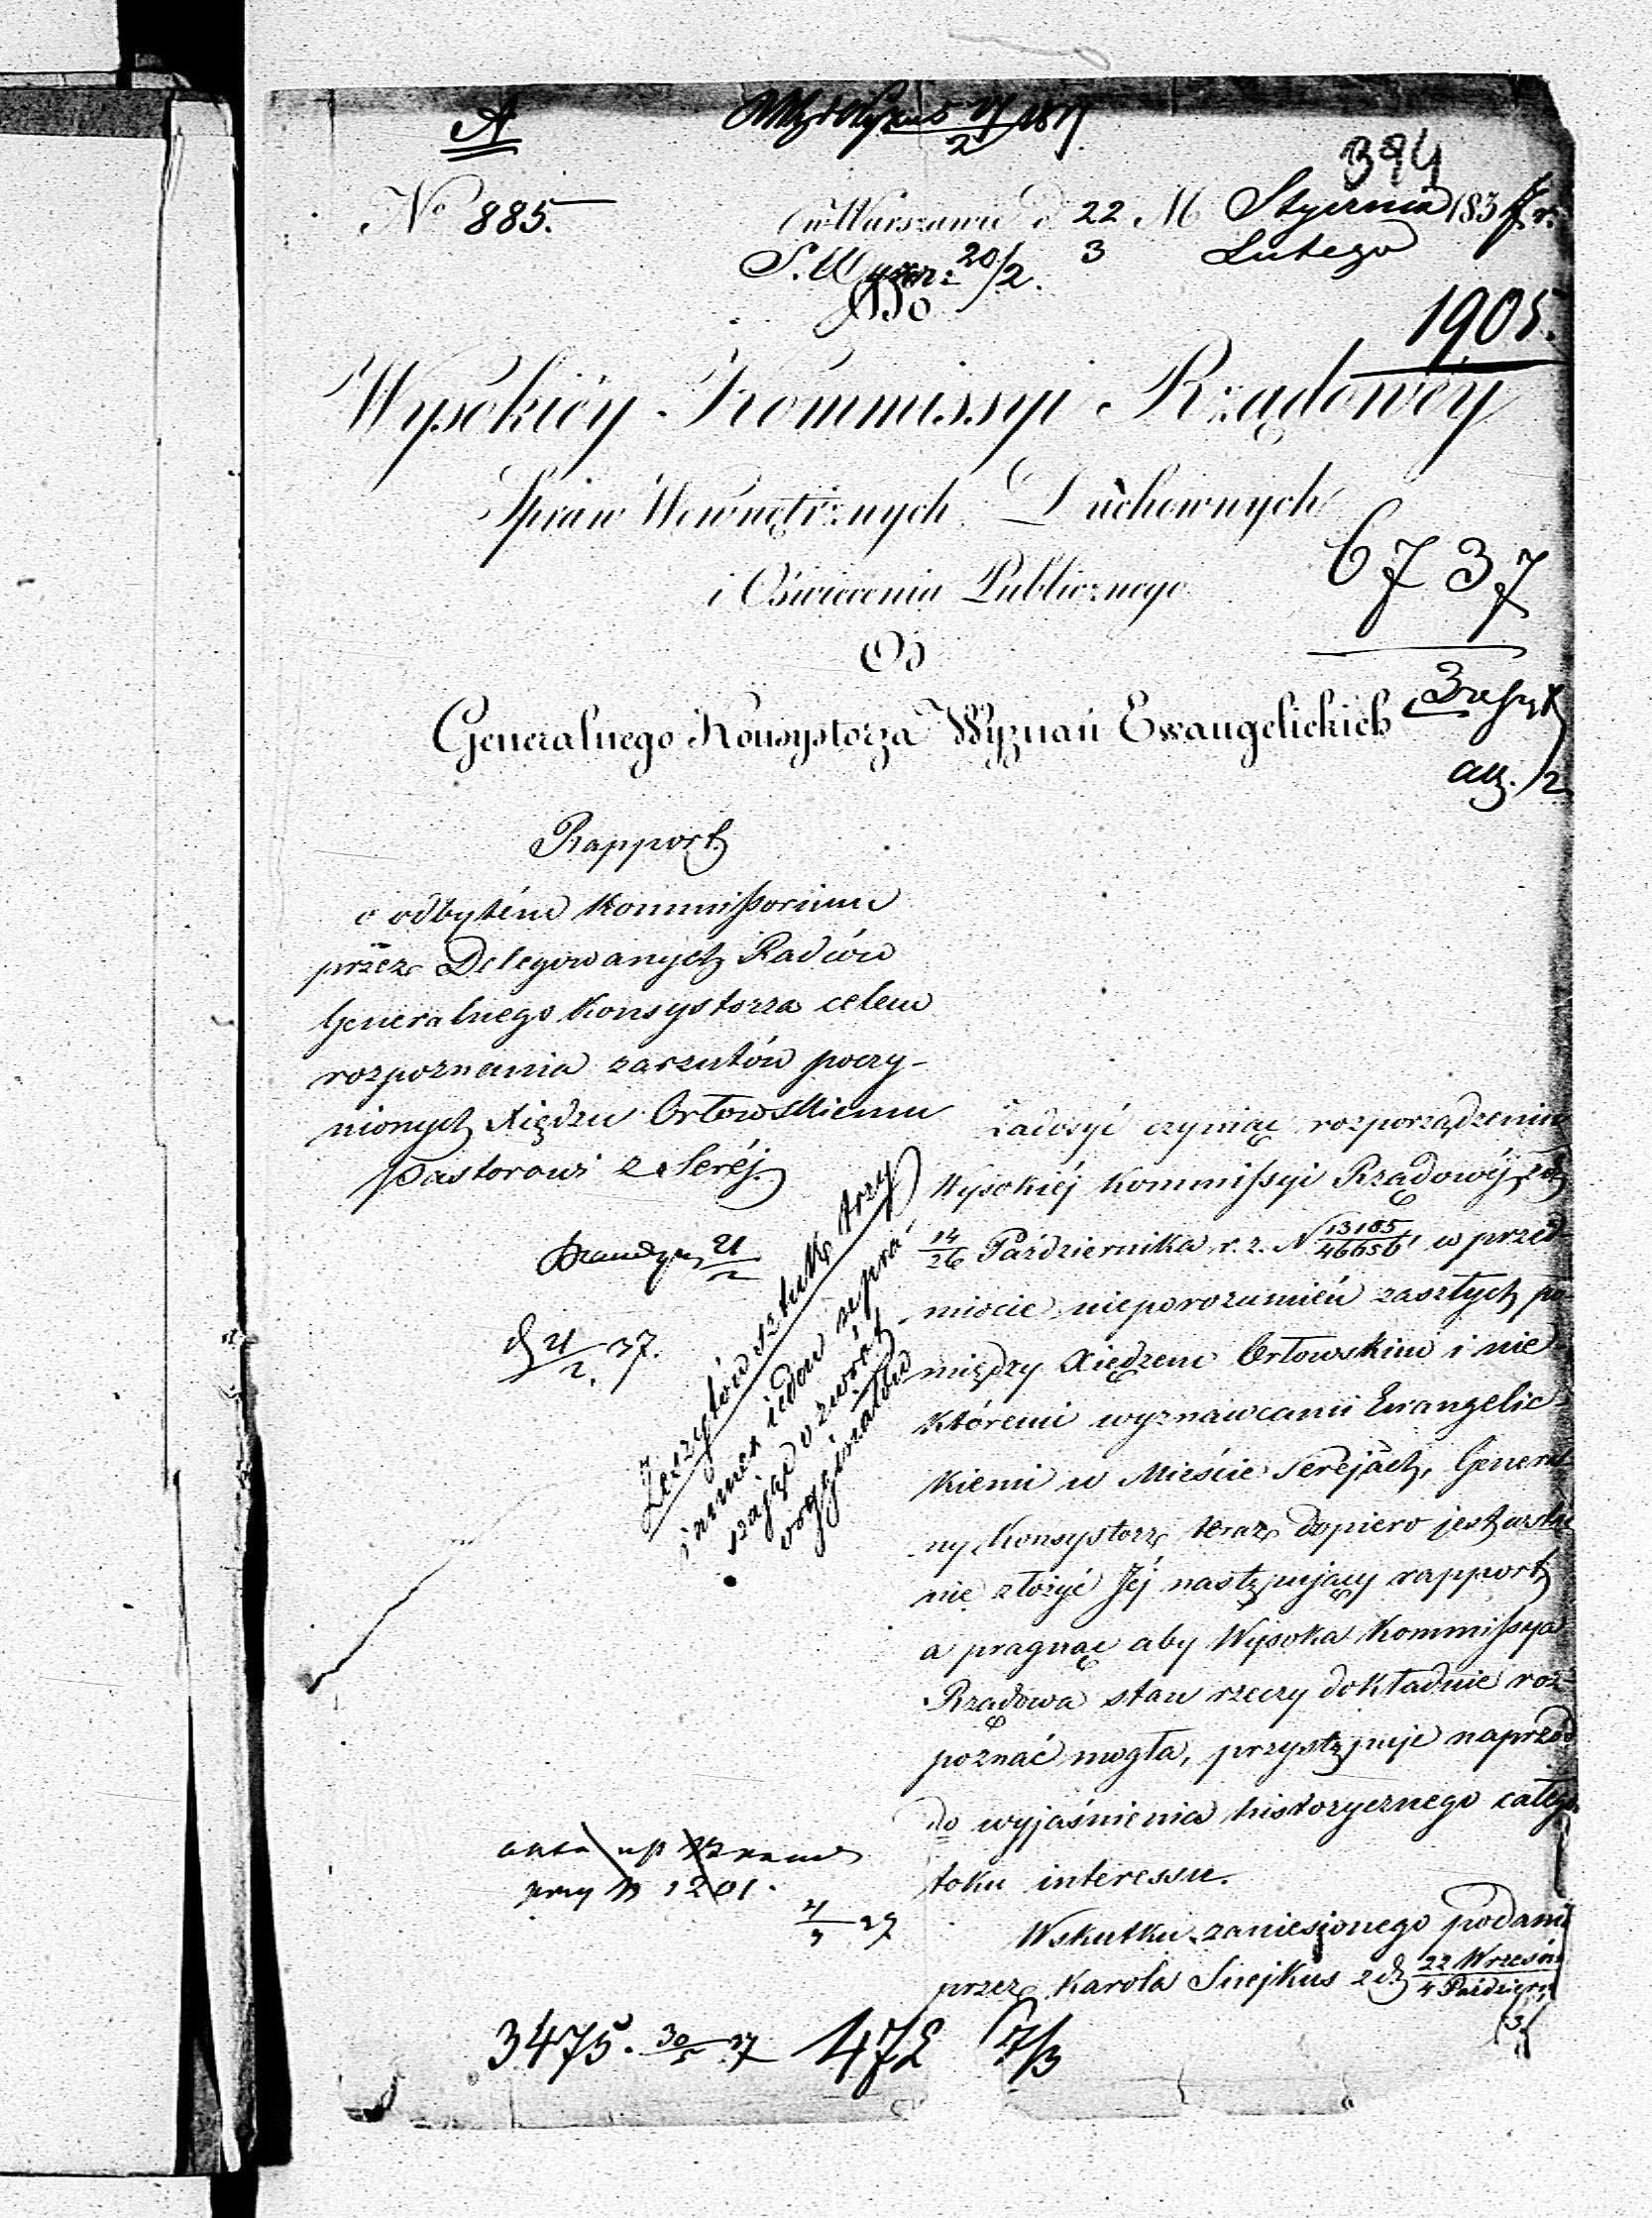 A
394
No 885.
w Warszawie d 22 M Stycznia 1837 r.
3 Lutego
20/2.
Do
1905.
Wysokiéy Kommissyi Rządowéy
Spraw Wewnętrznych Duchownych
i Oświecenia Publicznego
6737
Od
Generalnego Konsystorza Wyznań Ewangelickich
Rapport
o odbytém Kommissorium
przez Delegowanych Radców
Generalnego Konsystorza celem
rozpoznania zarzutów poczy-
nionych Xiędzu Orłowskiemu
Pastorowi z Seréj.
21/2
21/2 37.
Zeszytów sztuk trzy
i numer jeden
szając o zwrót
oryginałów
Zadosyć czyniąc rozporządzeniu
Wysokiéj Kommissyi Rządowéj z d
14/26 Października r. z. N 13185/46656 w przed-
miocie nieporozumień zaszłych po-
między Xiędzem Orłowskim i nie-
któremi wyznawcami Ewangelic-
kiemi w Mieście Serejach, General-
ny Konsystorz teraz dopiero jest w sta-
nie złożyć Jéj następujący rapport
a pragnąc aby Wysoka Kommissya
Rządowa stan rzeczy dokładnie roz-
poznać mogła, przystępuje naprzód
do wyjaśnienia historycznego całego
toku interessu.
Wskutku zaniesionego podania
przez Karola Snejkus z d 22 Wrześn/4 Paździer
przy N 1201.
3475. 30/5 37 472 17/3